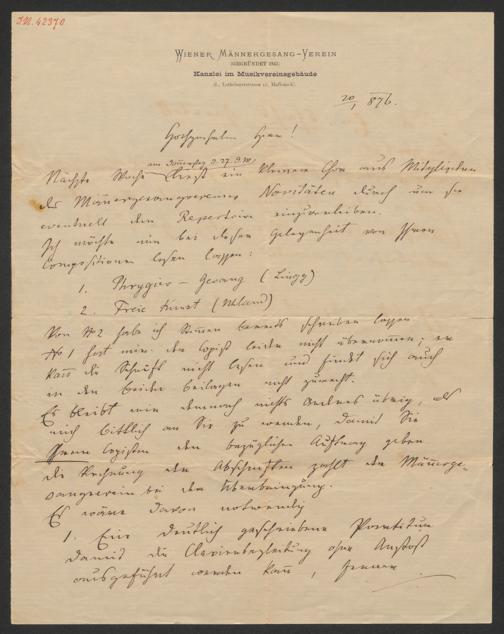 I.N. 42370
WIENER MÄNNERGESANG-VEREIN
GEGRÜNDET 1843.
Kanzlei im Musikvereinsgebäude
20/1 876.
Hochgeehrter Herr!
am Donnerstag d. 27. d. M.
Nächste Woche liest ein kleiner Chor aus Mitgliedern
des Männergesangvereines Novitäten durch um sie
eventuell dem Repertoire einzuverleiben.
Ich möchte nun bei dieser Gelegenheit von Ihren
Compositionen lesen lassen:
1. Phrygier-Gesang (Lingg)
2. Freie Kunst (Uhland)
Von No 2 habe ich Stimmen bereits schreiben lassen.
No 1 hat mir der Copist leider nicht übernommen; er
kann die Schrift nicht lesen und findet sich auch
in den beiden Beilagen nicht zurecht.
Es bleibt mir demnach nichts anderes übrig, als
mich bittlich an Sie zu wenden, damit Sie
Ihrem Copisten den bezüglichen Auftrag geben
die Rechnung der Abschriften zahlt der Männerge-
sangverein bei der Überbringung.
Es wäre davon notwendig
1. Eine deutlich geschriebene Partitur
damit die Clavierbegleitung ohne Anstoß
ausgeführt werden kann, ferner